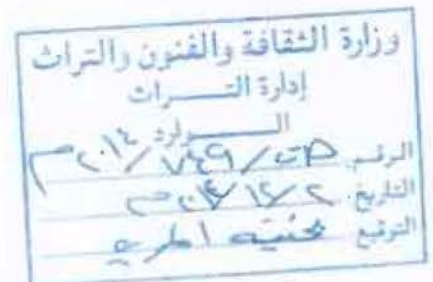 وزارة الثقافة والفنون والتراث
إدارة التـــراث
الـــوارد
الرقم ٧٤٩/ ٢٠١٤م
التاريخ ٢٠١٤/١٢/٢م
التوقيع